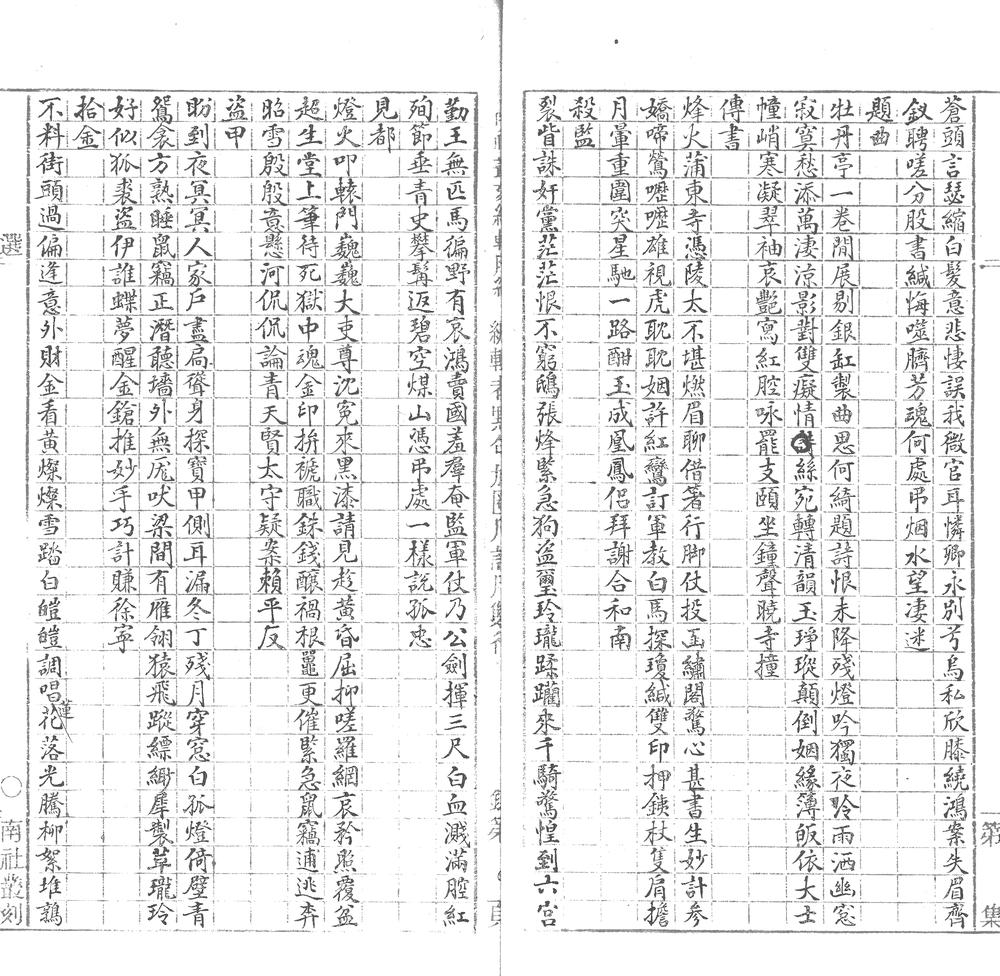 蒼頭言瑟縮白髮意悲悽誤我微官耳憐卿永別兮烏私欣膝繞鴻案失眉齊
釵聘嗟分股書緘悔噬臍芳魂何處弔烟水望淒迷
題曲
牡丹亭一卷閒展剔銀缸製曲思何綺題詩恨未降殘燈吟獨夜冷雨洒幽窓
寂寞愁添萬淒涼影對雙癡情絲宛轉清韻玉琤瑽顛倒姻緣簿皈依大士
幢峭寒凝翠袖哀艷寫紅腔咏罷支頤坐鐘聲曉寺撞
傳書
烽火蒲東寺憑陵太不堪燃眉聊借箸行脚仗投函繡閣驚心甚書生妙計參
嬌啼鶯嚦嚦雄視虎耽耽姻許紅鸞訂軍教白馬探瓊緘雙印押鐵杖隻肩擔
月暈重圍突星馳一路酣玉成凰鳳侶拜謝合和南
殺監
裂眥誅奸黨茫茫恨不窮鴟張烽緊急狗盗璽玲瓏蹂躪來千騎驚惶到六宮
勤王無匹馬徧野有哀鴻賣國羞羣奄監軍仗乃公劍揮三尺白血濺滿腔紅
殉節垂青史攀髯返碧空煤山憑弔處一樣說孤忠
見都
燈火叩轅門巍巍大吏尊沈冤來黑漆請見趁黃昏屈抑嗟羅網哀矜照覆盆
超生堂上筆待死獄中魂金印拚褫職銖錢釀禍根鼉更催緊急鼠竊逋逃奔
昭雪殷殷意懸河侃侃論青天賢太守疑案賴平反
盜甲
盼到夜冥冥人家戶盡扃聳身探寶甲側耳漏冬丁殘月穿窓白孤燈倚壁青
鴛衾方熟睡鼠竊正潛聽墻外無厖吠梁間有雁翎猿飛蹤縹緲犀製萃瓏玲
好似狐裘盜伊誰蝶夢醒金鎗推妙手巧計賺徐寧
拾金
不料街頭過偏逢意外財金看黃燦燦雪踏白皚皚調唱蓮花落光騰柳絮堆鶉
第 集
選
南社叢刻